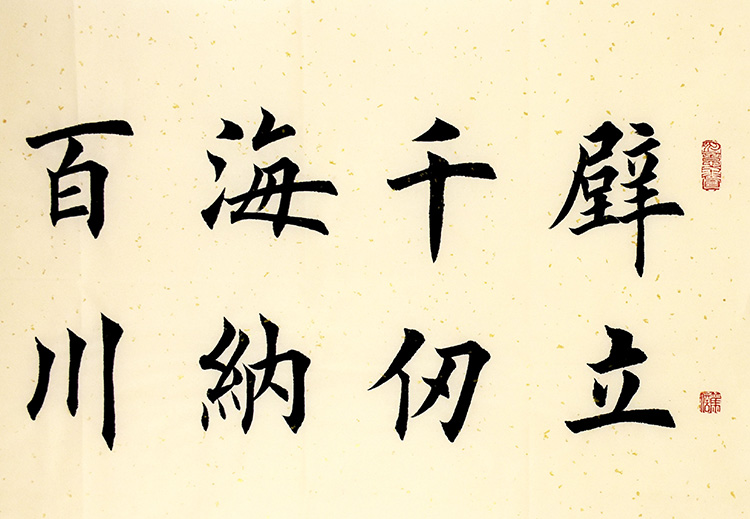 壁立
千仞
海納
百川